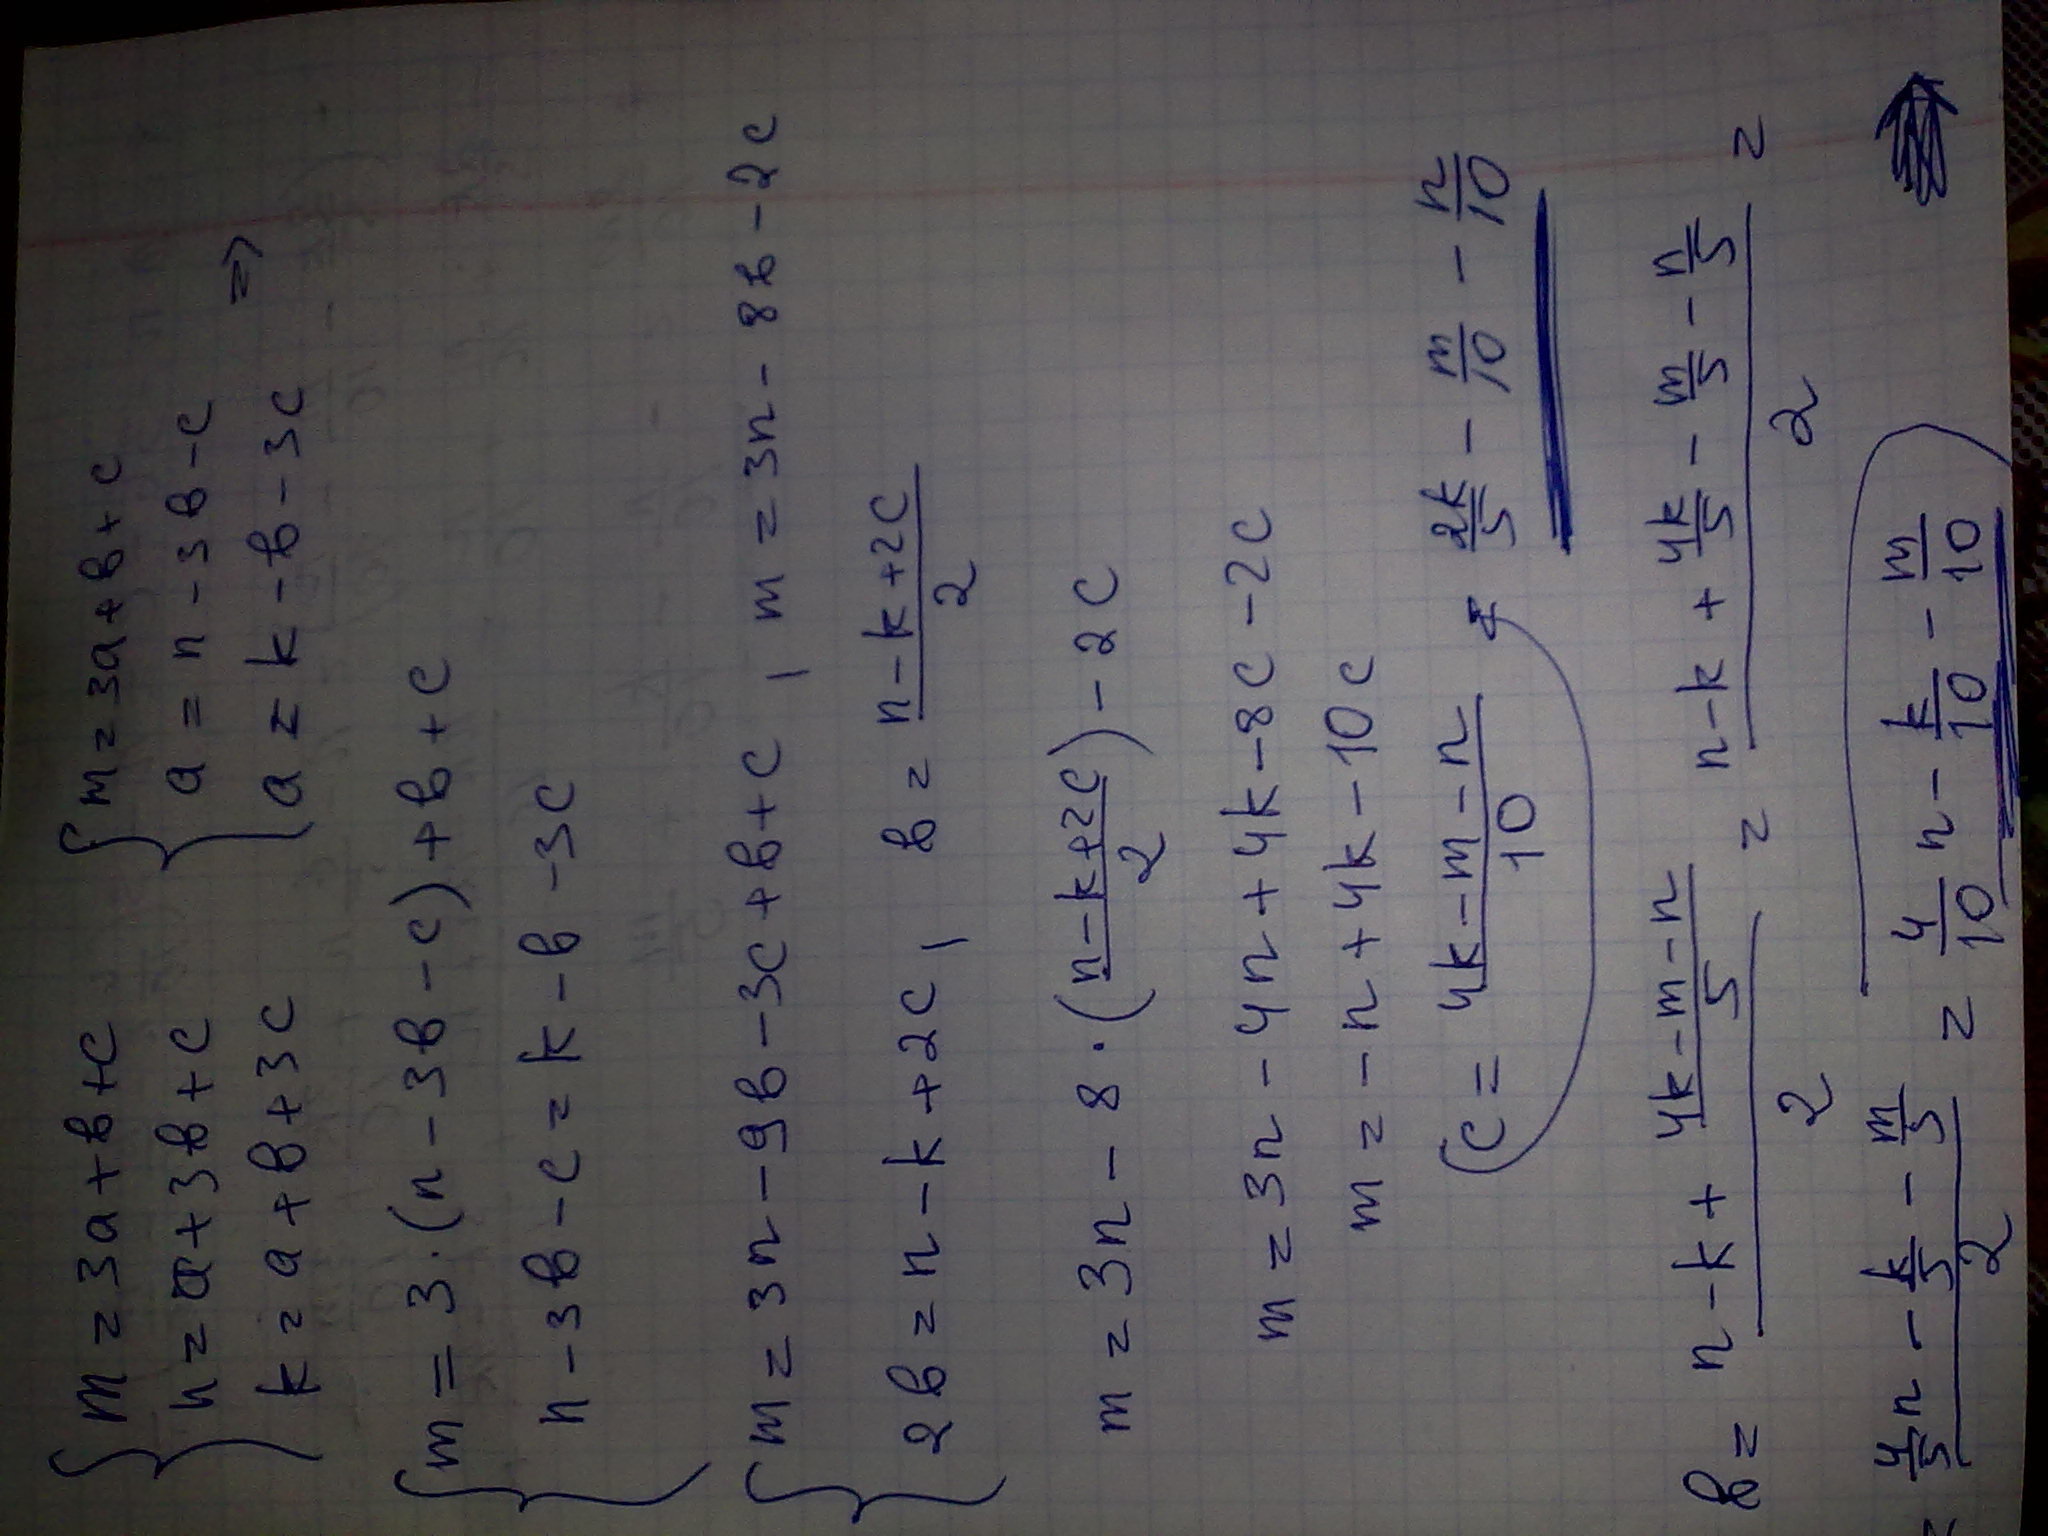 { m = 3a + b + c { m = 3a + b + c
n = a + 3b + c a = n - 3b - c =>
k = a + b + 3c a = k - b - 3c
{ m = 3 · (n - 3b - c) + b + c
n - 3b - c = k - b - 3c
{ m = 3n - 9b - 3c + b + c , m = 3n - 8b - 2c
2b = n - k + 2c , b = (n - k + 2c)/2
m = 3n - 8 · ((n - k + 2c)/2) - 2c
m = 3n - 4n + 4k - 8c - 2c
m = -n + 4k - 10c
c = (4k - m - n)/10 = 2k/5 - m/10 - n/10
b = (n - k + (4k - m - n)/5)/2 = (n - k + 4k/5 - m/5 - n/5)/2 =
= (4/5 n - k/5 - m/5)/2 = 4/10 n - k/10 - m/10